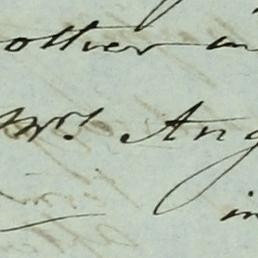 other in
Mrs Ang
in